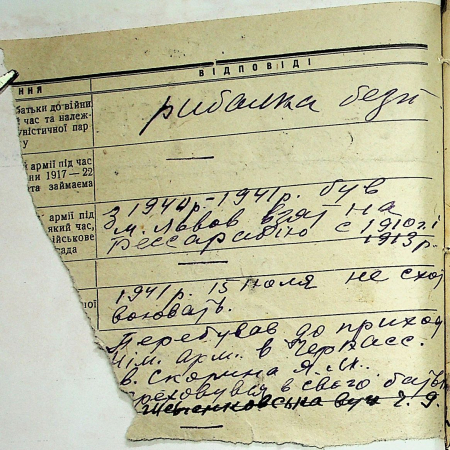 ння
ВІДПОВІДІ
батьки до війни
час та належ-
уністичної пар
у
рибалка безп
армії під час
ни 1917—22
та займаєма
армії під
який час,
ійськове
сада
З 1940р-1941р. був
м. Львов взят на
Бессарабію с 1910г і
1913р.
1941р. 15 июля не схо
воювать.
ної
Перебував до приход
арм. в Черкасс.
в. Скорина Я. М.
в свего бать
Шевченковська вул ч. 9.